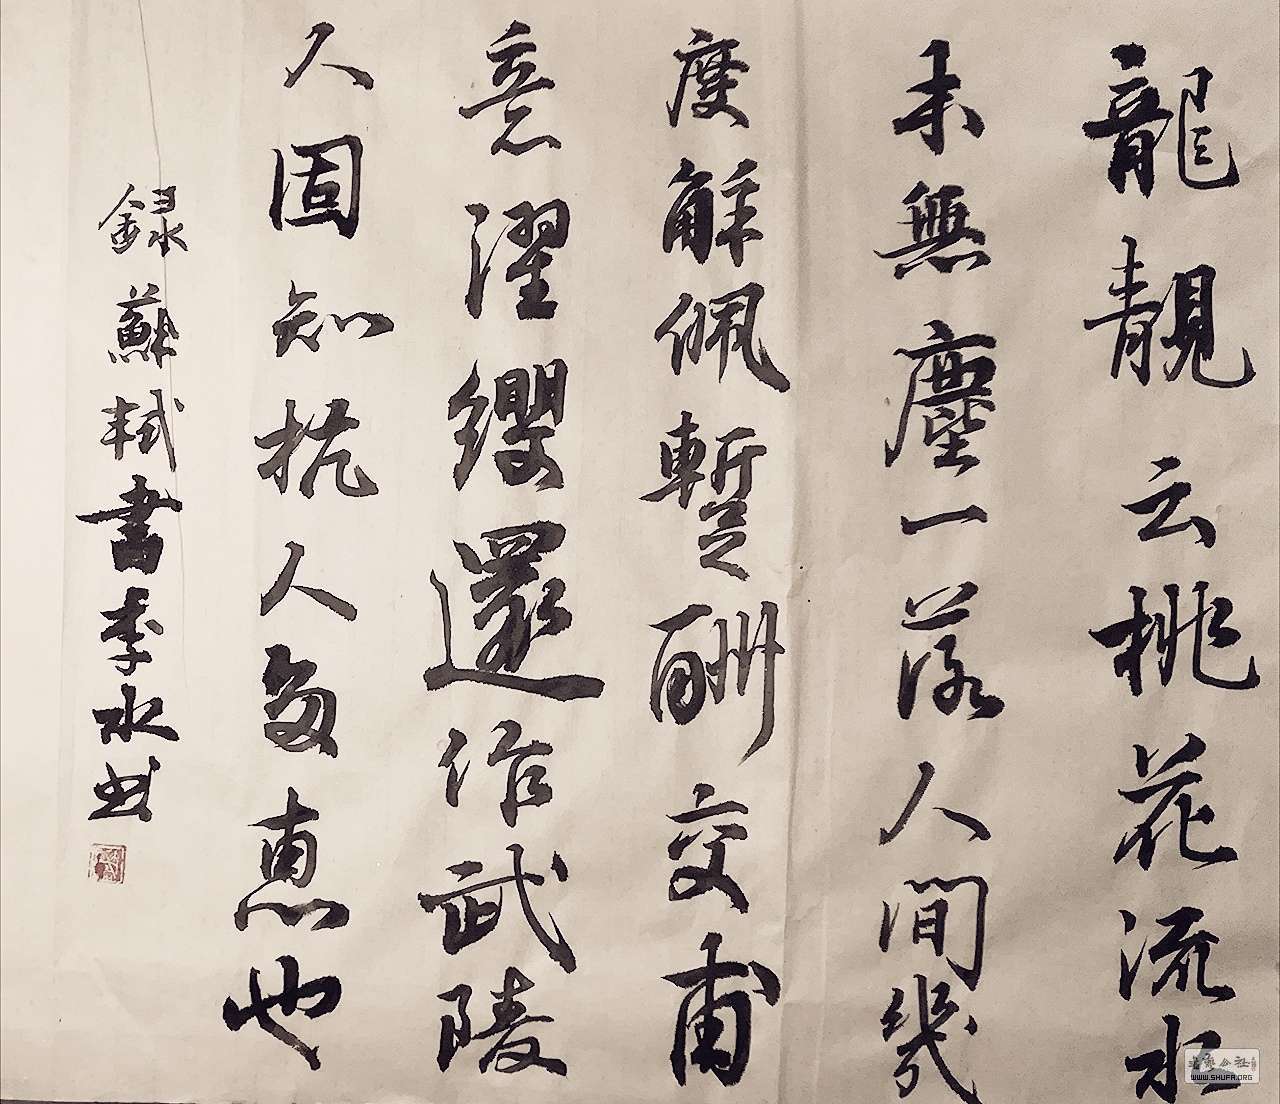 龍靚云桃花流水
未無塵一落人間幾
度解佩蹔酬交甫
意濯纓還作武陵
人固知抗人多惠也
録蘇軾書李水书
WWW.SHUFA.ORG